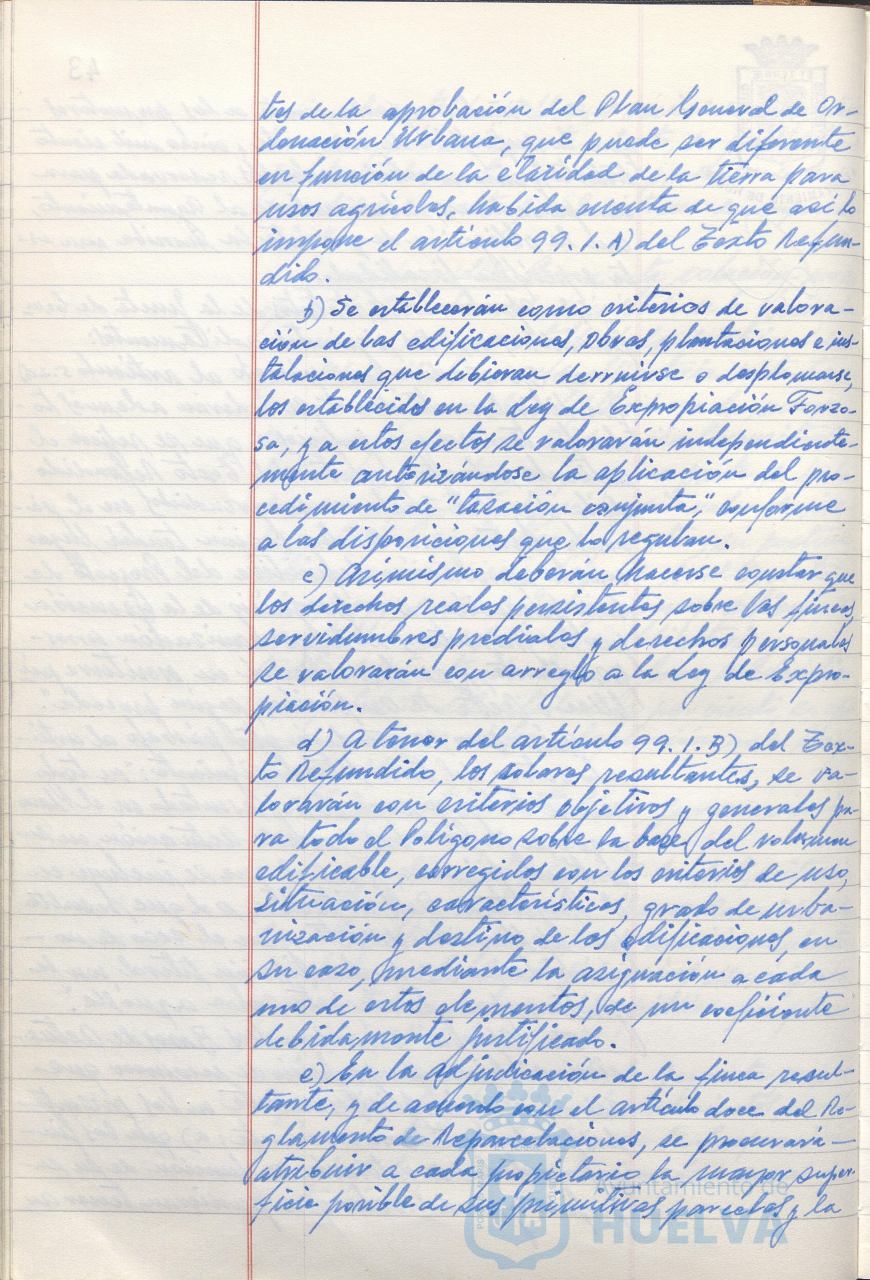 tes de la aprobación del Plan General de Or-
denación Urbana, que puede ser diferente
en función de la claridad de la tierra para
usos agrícolas, habida cuenta de que así lo
impone el artículo 99.1.A) del Texto Refun-
dido.
b) Se establecerán como criterios de valora-
ción de las edificaciones, obras, plantaciones e ins-
talaciones que debieran derruirse o desplomarse,
los establecidos en la Ley de Expropiación Forzo-
sa, y a estos efectos se valorarán independiente-
mente autorizándose la aplicación del pro-
cedimiento de "tasación conjunta", conforme
a las disposiciones que lo regulan.
c) Asimismo deberán hacerse constar que
los derechos reales persistentes sobre las fincas,
servidumbres prediales y derechos personales
se valorarán con arreglo a la Ley de Expro-
piación.
d) A tenor del artículo 99.1.B) del Tex-
to Refundido, los solares resultantes, se va-
lorarán con criterios objetivos y generales pa-
ra todo el Polígono sobre la base del volumen
edificable, corregidos con los criterios de uso,
situación, características, grado de urba-
nización y destino de los edificaciones, en
su caso, mediante la asignación a cada
uno de estos elementos, de un coeficiente
debidamente justificado.
e) En la adjudicación de la finca resul-
tante, y de acuerdo con el artículo doce del Re-
glamento de Reparcelaciones, se procurará
atribuir a cada propietario la mayor super-
ficie posible de sus primitivas parcelas y la
Ayuntamiento de
HUELVA